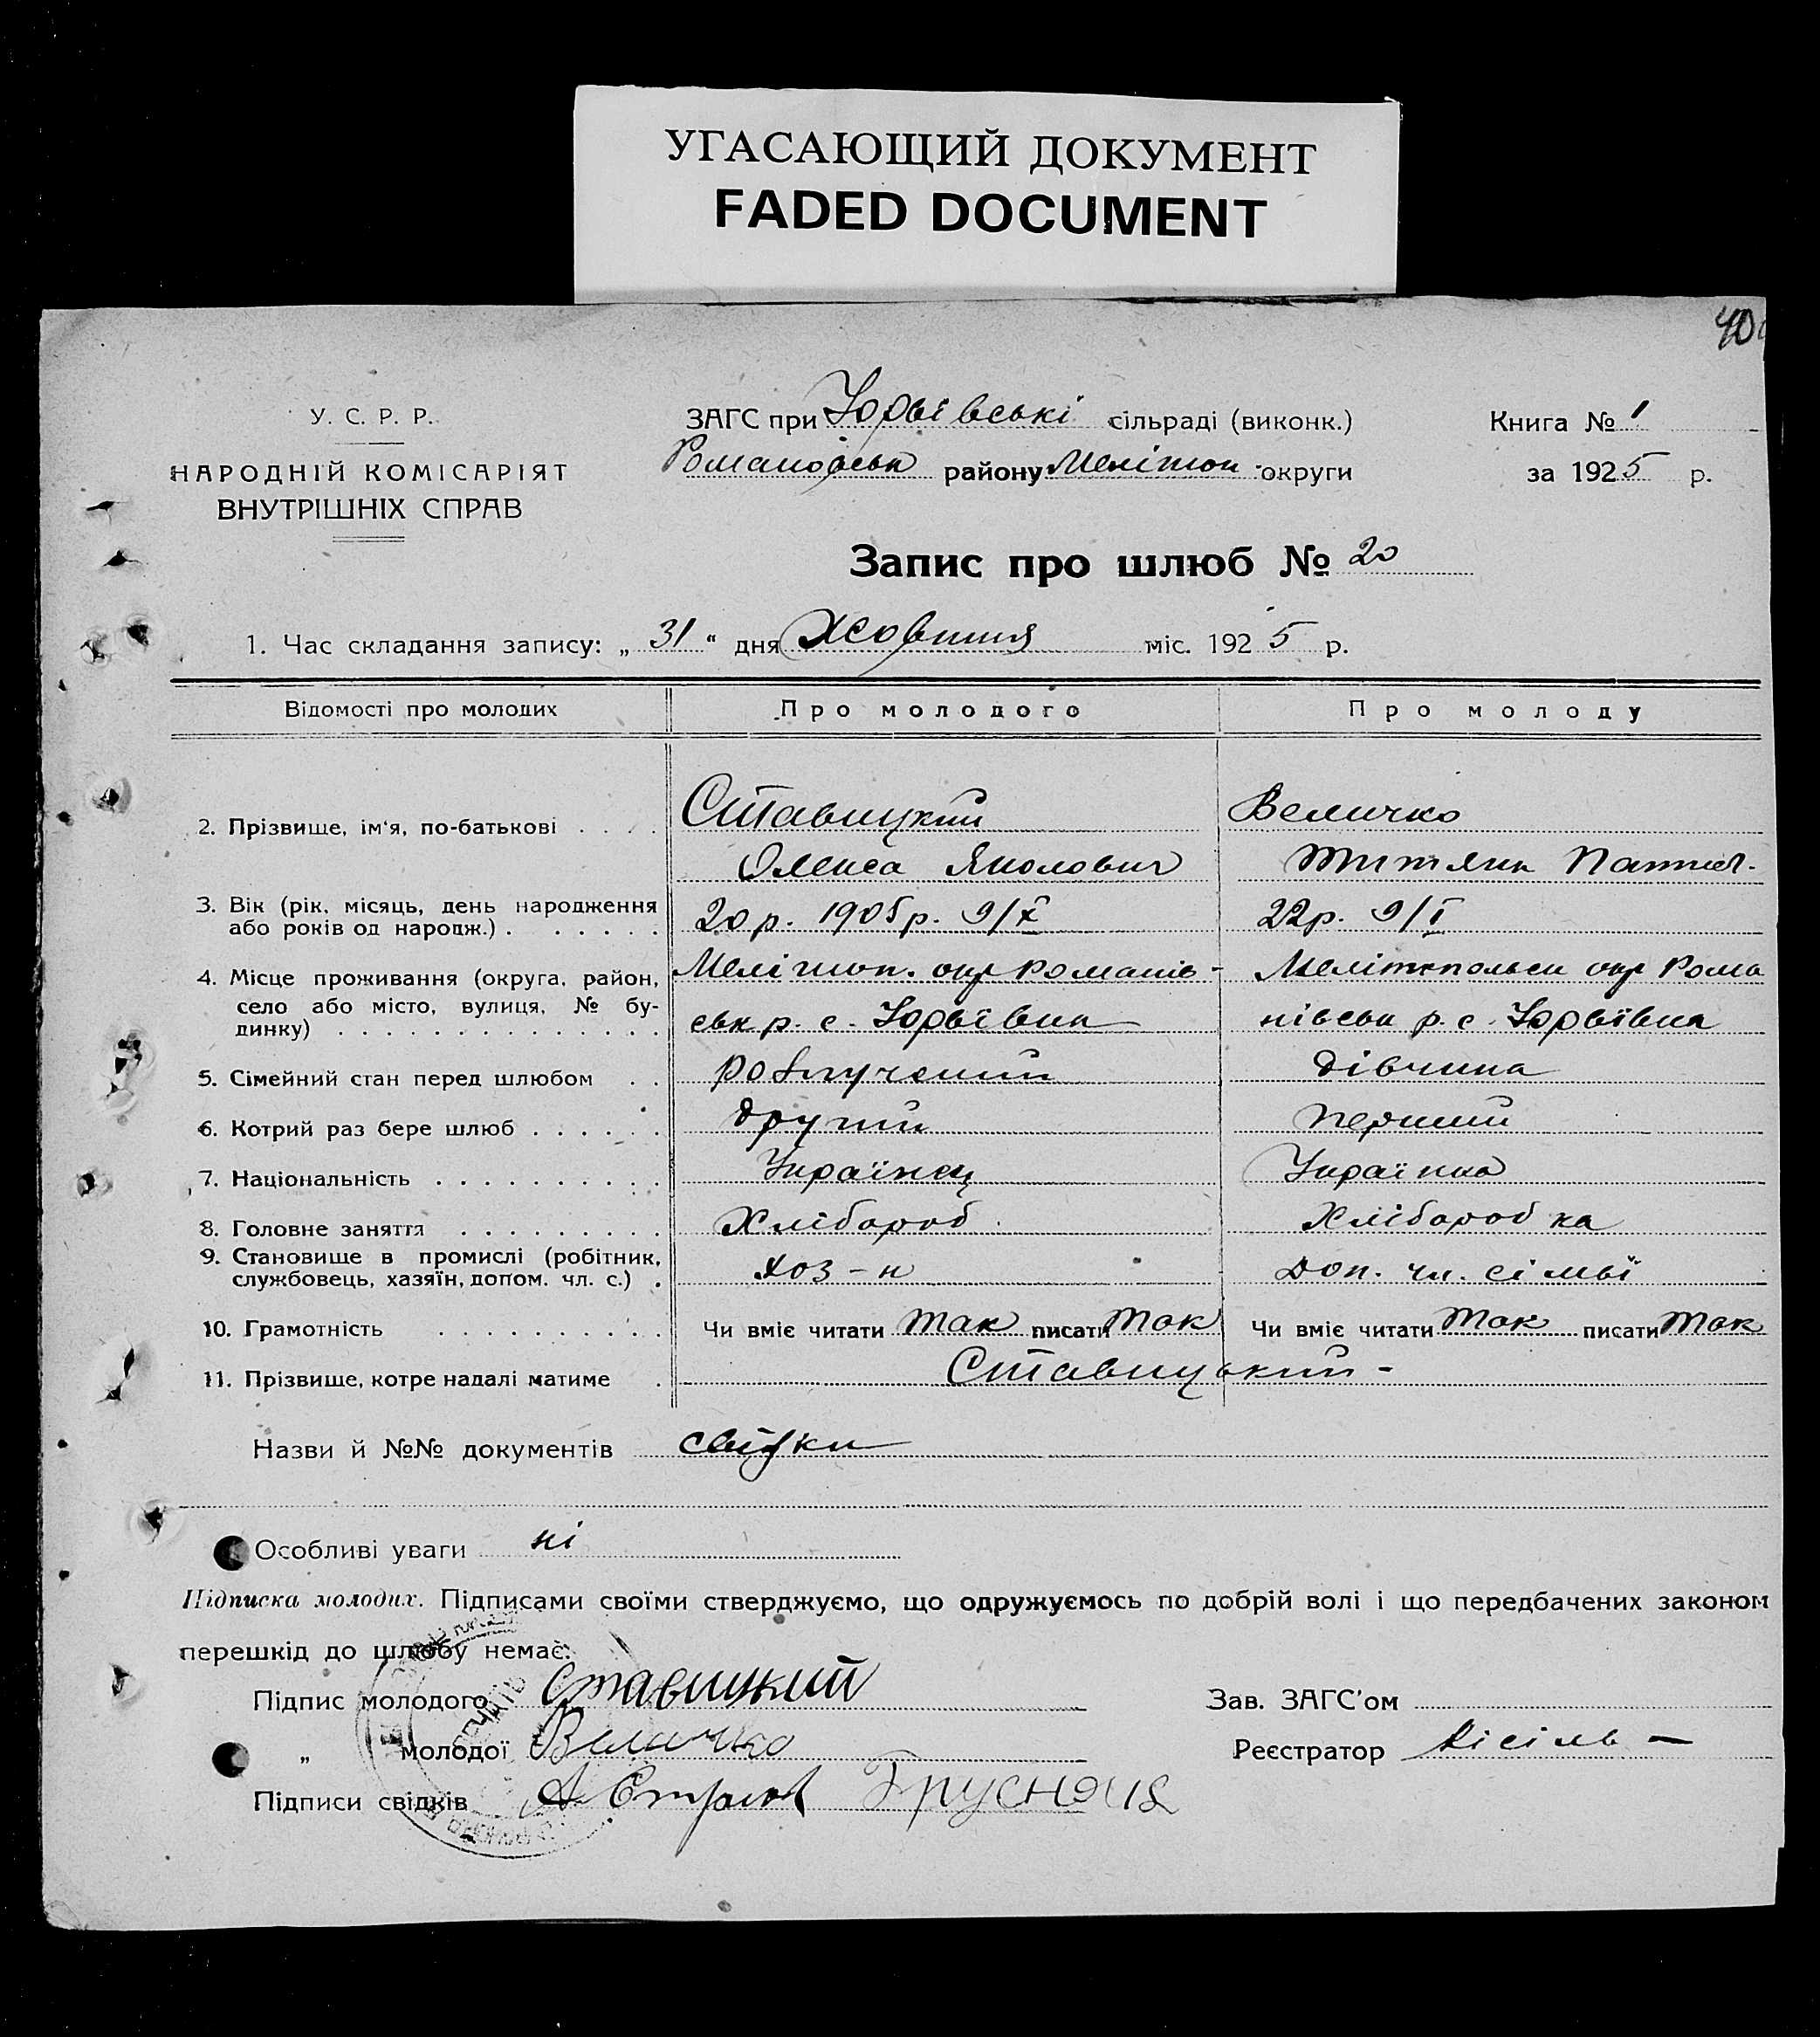 УГАСАЮЩИЙ ДОКУМЕНТ
FADED DOCUMENT
У. С. Р. Р.
НАРОДНІЙ КОМІСАРІЯТ
ВНУТРІШНІХ СПРАВ
ЗАГС при Юрьївські сільраді (виконк.)
Романовськ району Мелітоп. округи
Книга № 1
за 1925 р.
Запис про шлюб № 20
1. Час складання запису: „ 31 “ дня Жовтня міс. 1925 р.
Відомості про молодих Про молодого Про молоду
2. Прізвище, ім'я, по-батькові . . . . Ставицкий Величко
Олекса Яколович Титяна
3. Вік (рік, місяць, день народження
або років од народж.) . . . . . . 20 р. 1905 р. 9/X 22 р. 9/I
4. Місце проживання (округа, район, Мелітоп. окр Романів- Мелітопольськ окр Рома
село або місто, вулиця, № бу-
динку) . . . . . . . . . . . . . ськ р. с. Юрьївка нівськ р. с. Юрьївка
5. Сімейний стан перед шлюбом . . розлучений дівчина
6. Котрий раз бере шлюб . . . . . . другий перший
7. Національність . . . . . . . . . . Українец Українка
8. Головне заняття . . . . . . . . . Хлібороб Хліборобка
9. Становище в промислі (робітник,
службовець, хазяїн, допом. чл. с.) . хоз-н Доп. чл. сімьї
10. Грамотність . . . . . . . . . . Чи вміє читати так писати так Чи вміє читати так писати так
11. Прізвище, котре надалі матиме . Ставицький -
Назви й №№ документів свідки
Особливі уваги ні
Підписка молодих. Підписами своїми стверджуємо, що одружуємось по добрій волі і що передбачених законом
перешкід до шлюбу немає.
Підпис молодого Ставицкий Зав. ЗАГС'ом
„ молодої Величко Реєстратор Кісіль -
Підписи свідків